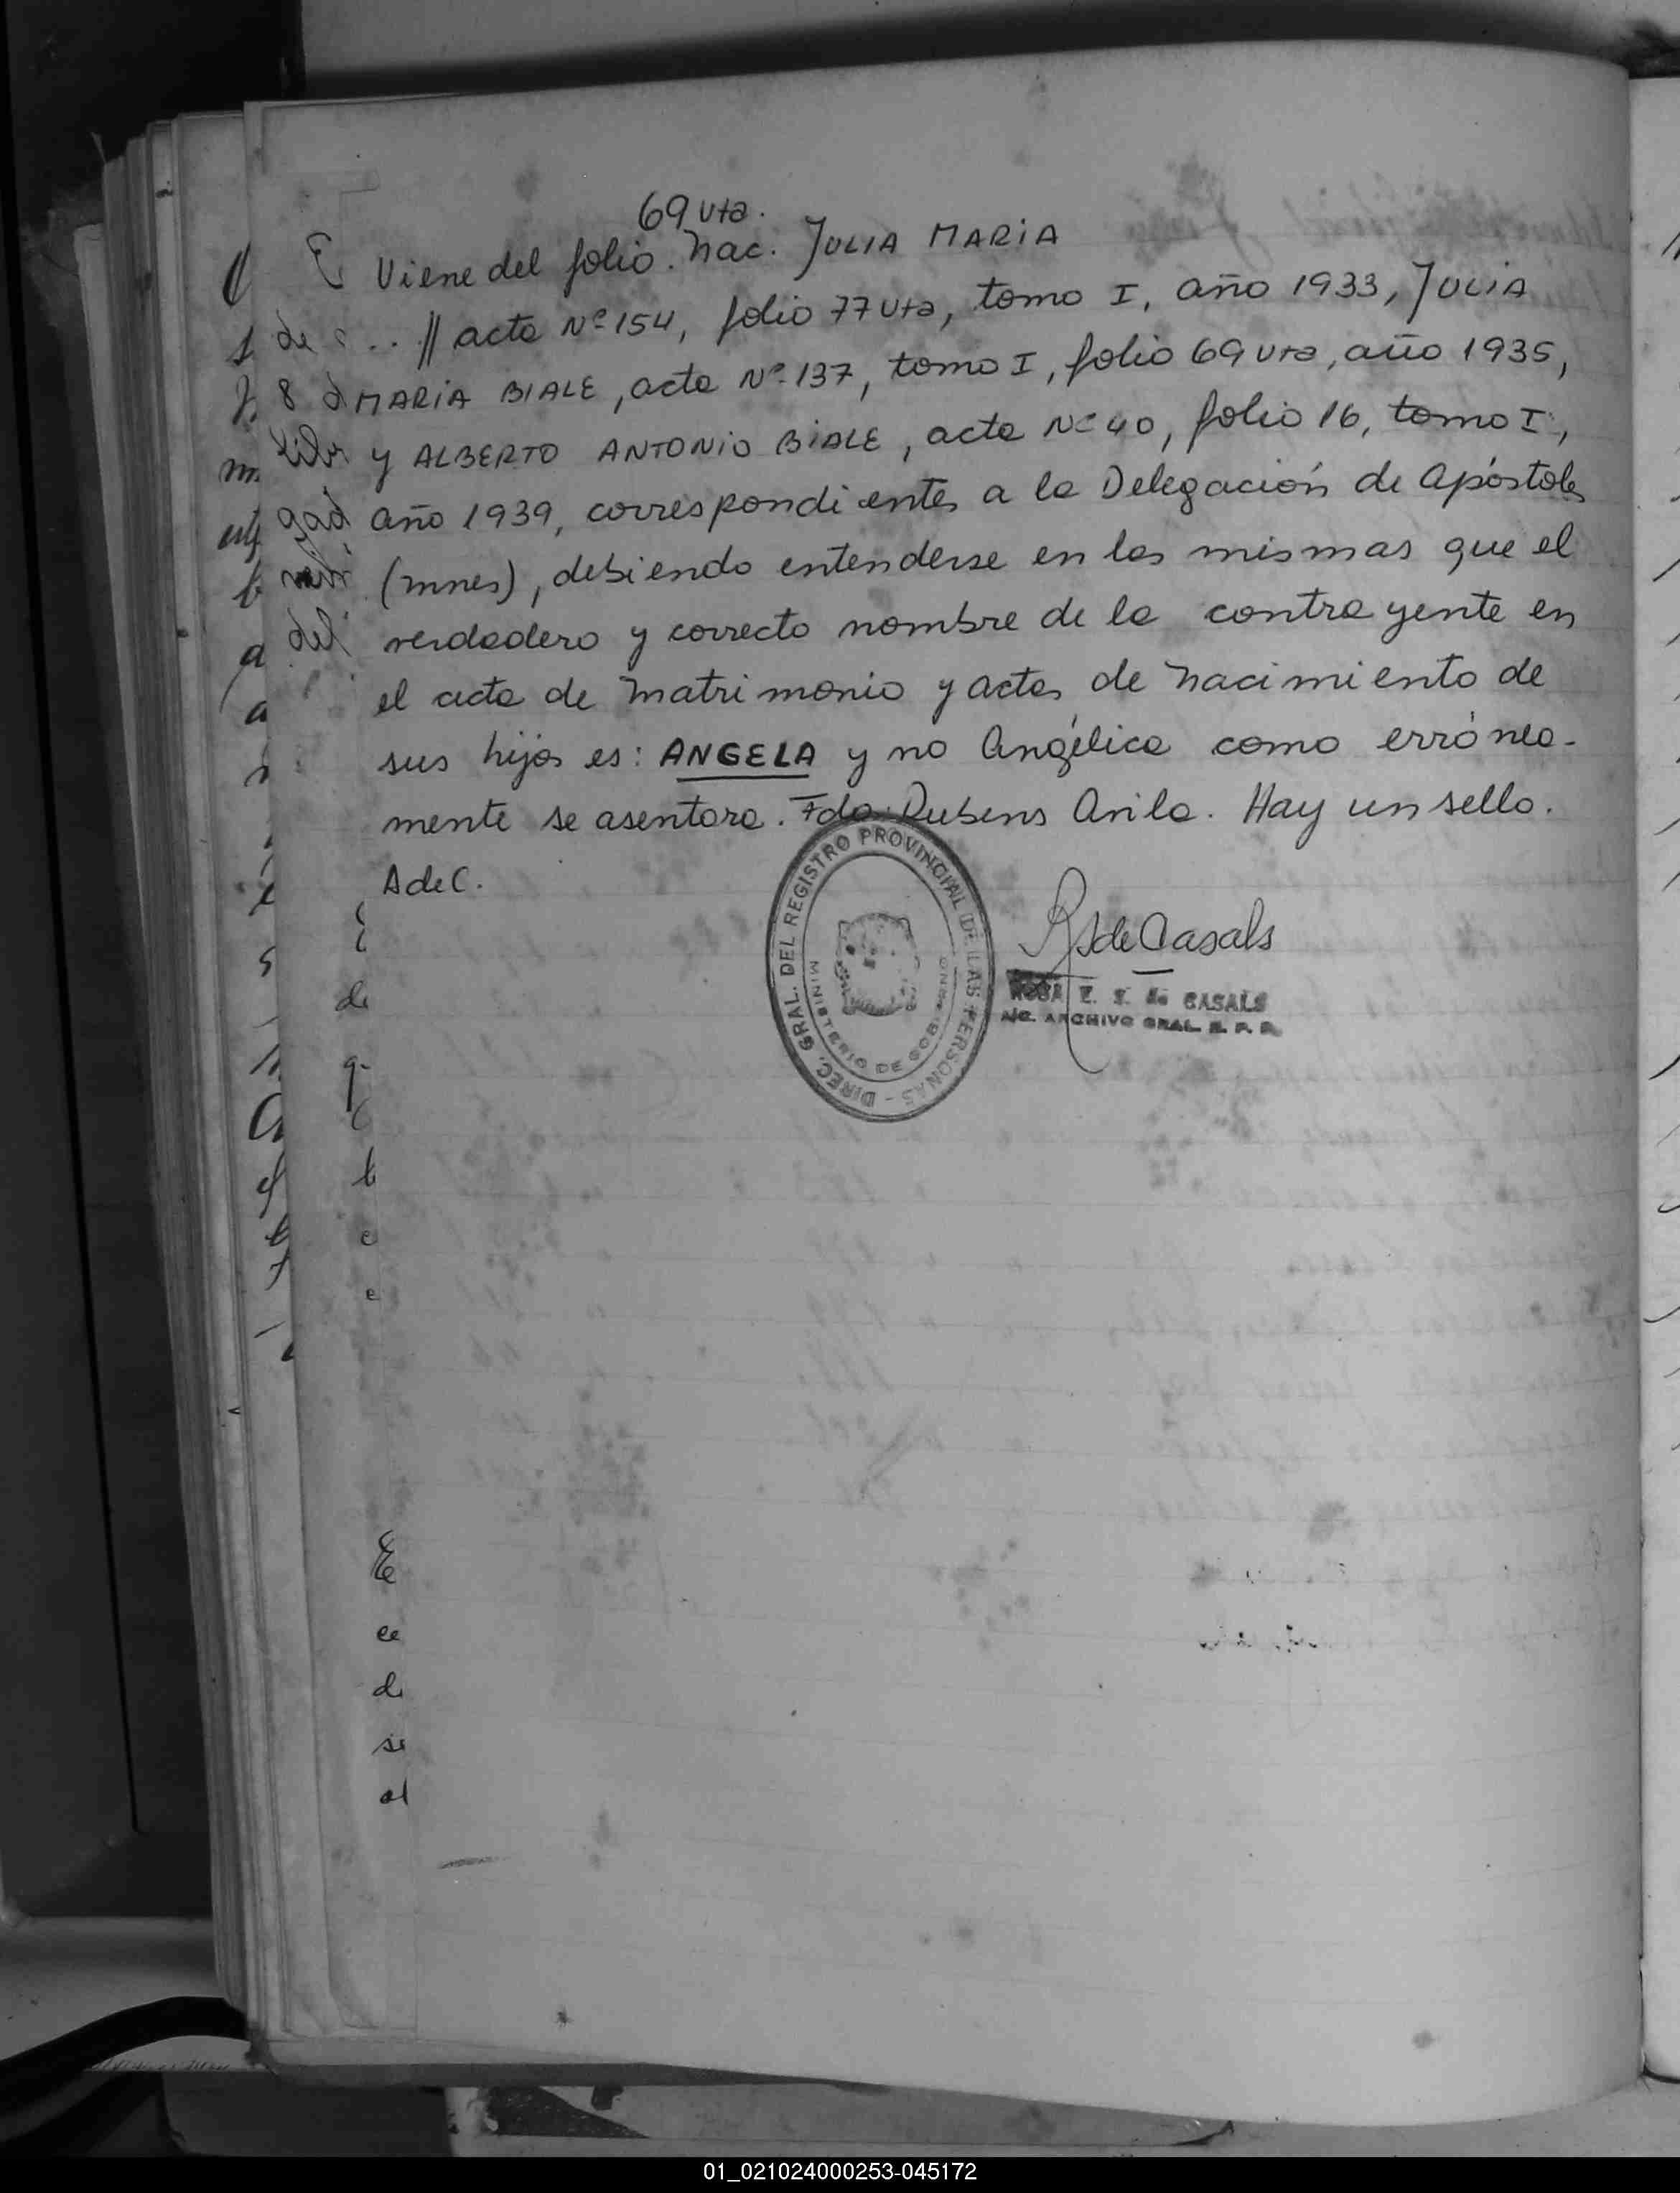 69 vta.
Viene del folio. Nac. JULIA MARIA
... // acta Nº 154, folio 77 vta, tomo I, año 1933, JULIA
MARIA BIALE, acta Nº 137, tomo I, folio 69 vta, año 1935,
y ALBERTO ANTONIO BIALE, acta Nº 40, folio 16, tomo I,
año 1939, correspondientes a la Delegación de Apóstoles
(mnes), debiendo entenderse en las mismas que el
verdadero y correcto nombre de la contrayente en
el acta de matrimonio y actas de nacimiento de
sus hijos es: ANGELA y no Angélica como errónea-
mente se asentara. Fdo: Rubens Avila. Hay un sello.
A de C.
DIREC. GRAL. DEL REGISTRO PROVINCIAL DE LAS PERSONAS -
MINISTERIO DE GOBIERNO
RS de Casals
ROSA E. S. de CASALS
A/C. ARCHIVO GRAL. R. P. P.
01_021024000253-045172